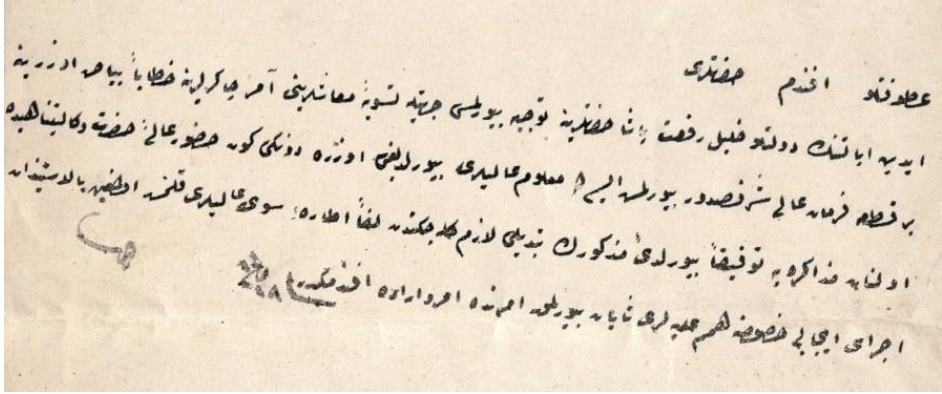 عطوفتلو افندم حضرتلری
ایدین ایالتنك دولتلو خلیل رفعت پاشا حضرتلرینه توجیه بیورلمسی جهتیله تسویهٔ معاشلرینی آمر چاكرلرینه خطاباً بیاض اوزرینه
بر قطعه فرمان عالی شرفصدور بیورلمش ایسه ده معلوم عالیلری بیورلدیغی اوزره دونكی كون حضور عالئ حضرت وكالتپناهیده
اولنان مذاكره یه توفیقاً بیورلدئ مذكورك تبدیلی لازم كله جكندن لفاً اطارهٔ سوی عالیلری قلنمش اولمغین بالاستیذان
اجرای ایجابی خصوصنه همم علیه لری شایان بیورلمق بابنده امر و اراده افندمكدر